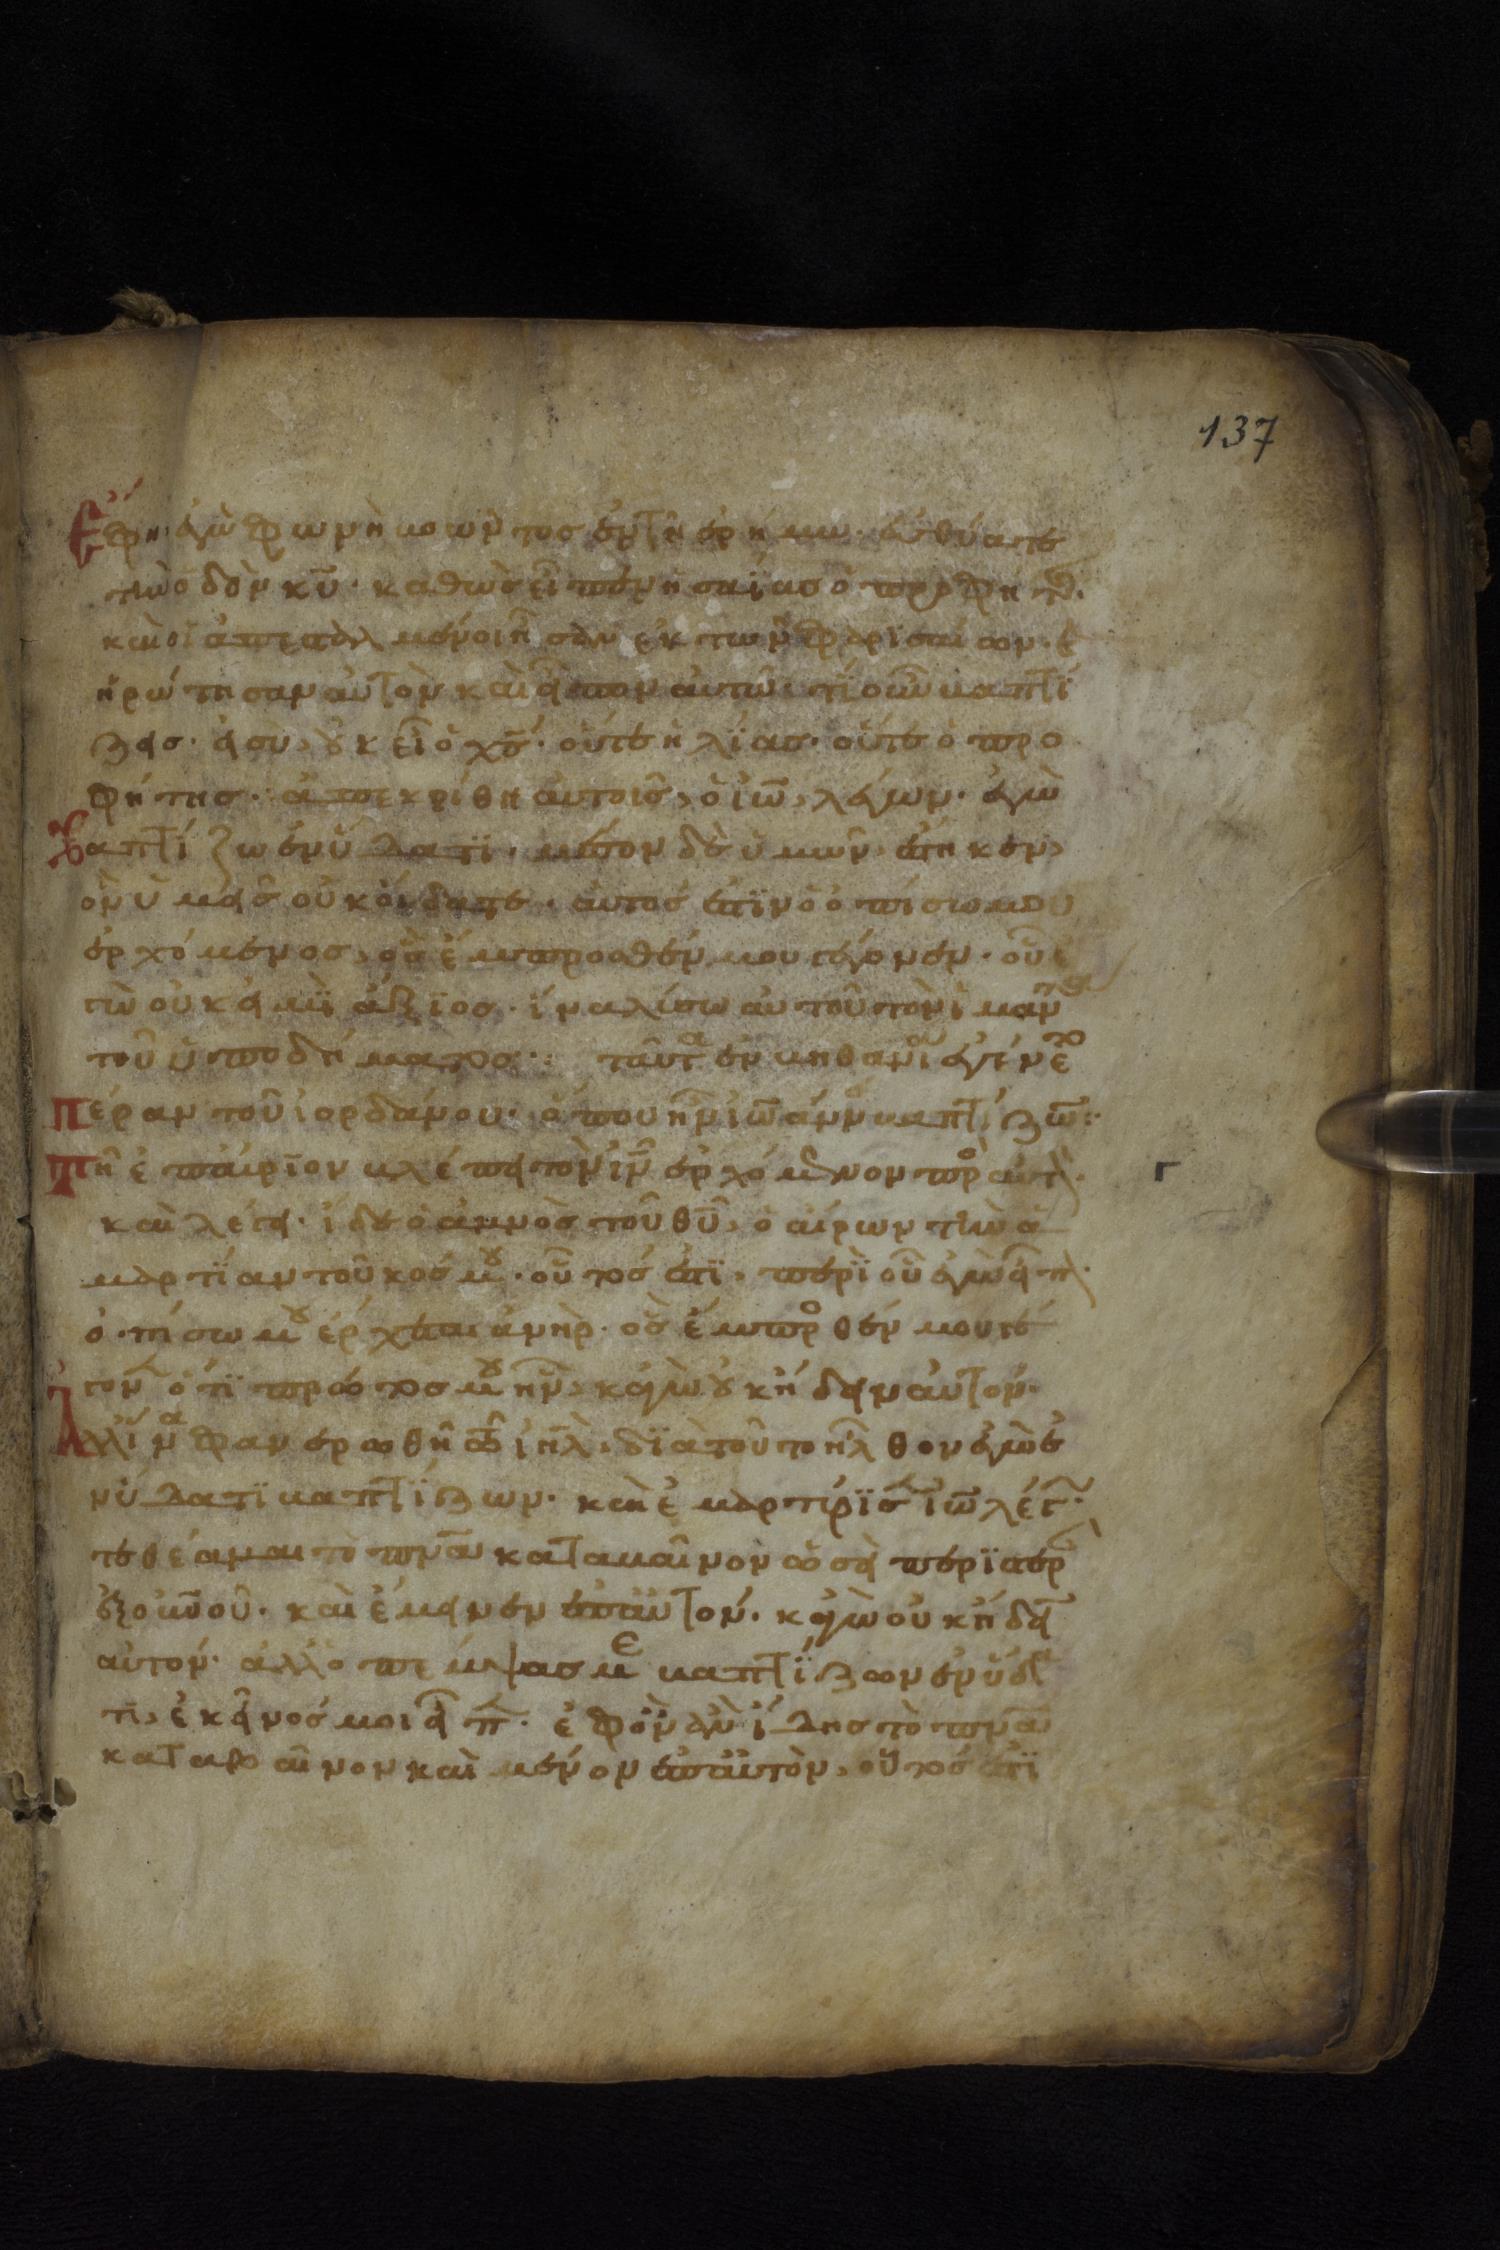 137
Ἔφη· ἐγὼ φωνὴ βοῶντος ἐν τῆ ἐρήμω· εὐθύνατε
τὴν ὁδὸν κυ̅· καθὼς εἶπεν ἡσαΐας ὁ προφήτης·
καὶ οἱ ἀπεσταλμένοι ἦσαν ἐκ τῶν φαρισαίων· κ
ἠρώτησαν αὐτὸν καὶ εἶπον αὐτῶ· τί οὖν βαπτΐ
ζεις· εἰ σὺ οὐκ εἶ ὁ χς̅· οὔτε ἡλίας· οὔτε ὁ προ
φήτης· ἀπεκρίθη αὐτοῖς, ὁ ἰω̅, λέγων· ἐγὼ
βαπτίζω ἐν ὕδατϊ, μέσον δὲ ὑμῶν ἕστηκεν,
ὃν ὑμεῖς οὐκ οἴδατε· αὐτός ἐστϊν ὁ ὀπίσω μου
ἐρχόμενος, ὃς ἔμπροσθέν μου γέγονεν· οὗ ἐ
γὼ οὐκ εἰμὶ ἄξϊος· ἵνα λύσω αὐτοῦ τὸν ἱμάντα
τοῦ ὑποδήματος·: ταῦτα ἐν βηθανία ἐγένετο
πέραν τοῦ ἰορδάνου· ὅπου ἦν ἰω̅άννης βαπτίζων:·
Τῆ ἐπαύριον βλέπει τὸν ιν̅ ἐρχόμενον πρὸς αὐτὸν·
καὶ λέγει· ἴδε ὁ ἀμνὸς τοῦ θυ̅, ὁ αἴρων τὴν ἁ
μαρτΐαν τοῦ κόσμου· οὗτός ἐστϊ, περὶ οὗ ἐγὼ εἶπον·
ὀπίσω μου ἔρχεται ἀνὴρ· ὃς ἔμπροσθέν μου γέ
γονεν ὅτϊ πρῶτος μου ἦν, καγὼ οὐκ ἤδειν αὐτόν·
Ἀλλ' ἵνα φανερωθῆ τῶ ιη̅λ, διὰ τοῦτο ἦλθον ἐγὼ ἐ
ν ὕδατϊ βαπτΐζων· καὶ ἐμαρτύρϊσεν ἰω̅ λέγων·
τεθέαμαι τὸ πνα̅ καταβαῖνον ὡσεὶ περϊστερὰν
ἐξ οὐνοῦ· καὶ ἔμεινεν ἐπ' αὐτόν. καγὼ οὐκ ἤδειν
αὐτόν· ἀλλ' ὁ πέμψας με βαπτΐζων ἐν ὕδα
τι, ἐκεῖνός μοι εἶπεν· ἐφ' ὃν ἂν ἴδης τὸ πνα̅
καταβαῖνον καὶ μένον ἐπ' αὐτὸν, οὗτός ἐστϊ